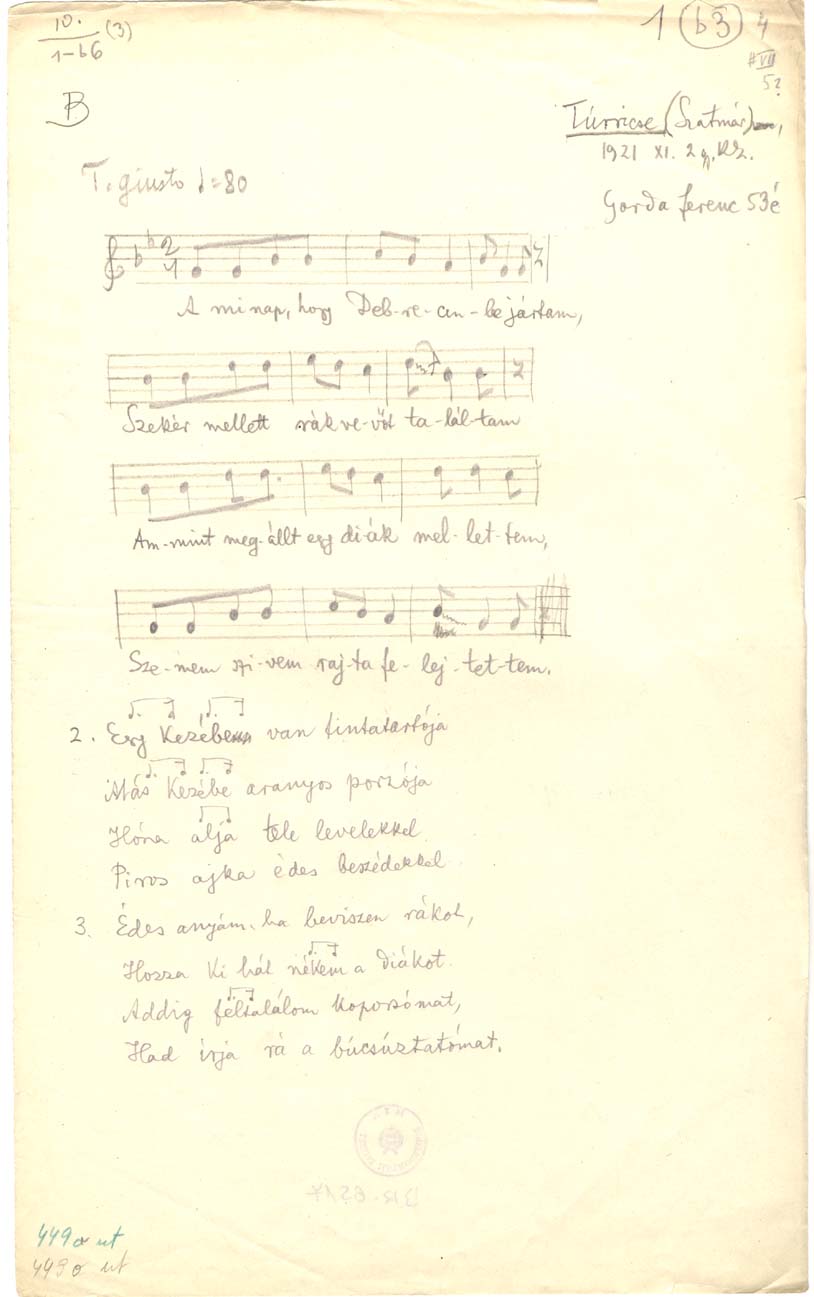 10.
1-b6 (3)
1 (b3) 4
#VII
5?
B
Túrricse (Szatmár),
1921 XI.
T. giusto ♩=80
Gorda Ferenc 53é
2
4
A minap, hogy Deb-re-cen-be jártam,
Szekér mellett rák ve-vőt ta-lál-tam
Am-mint meg-állt egy di-ák mel-let-tem,
Sze-mem szi-vem raj-ta fe-lej-tet-tem.
2. Egy Kezében van tintatartója
Más Kezébe aranyos porzója
Hóna alja tele levelekkel
Piros ajka édes beszédekkel
3. Édes anyám, ha beviszen rákot,
Hozza Ki hát nékem a diákot.
Addig feltalálom koporsómat,
Had írja rá a búcsúztatómat.
449a ut